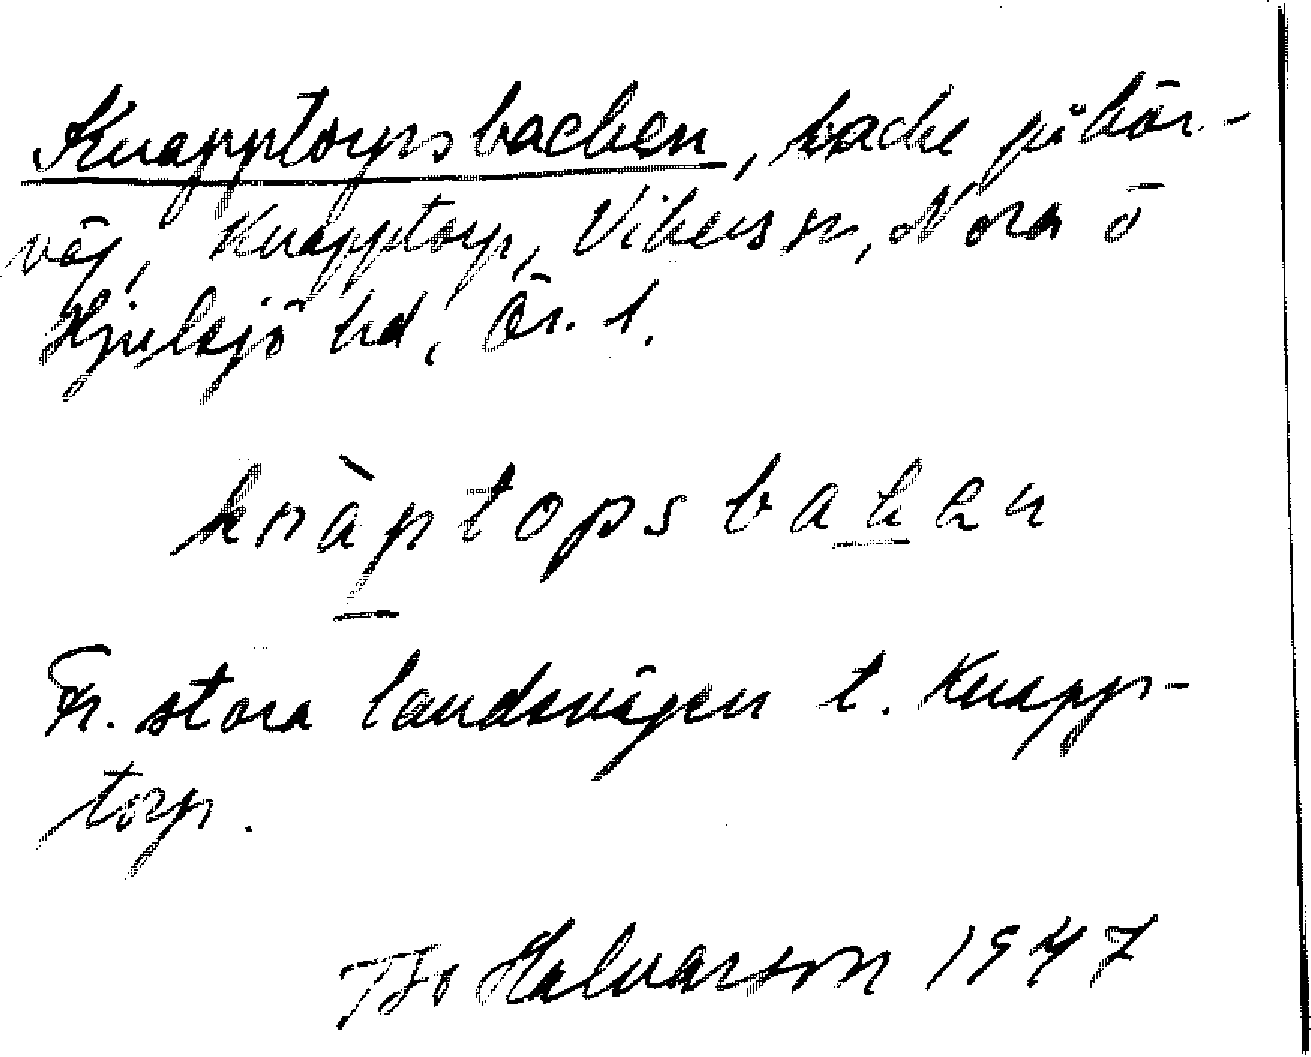 Knapptorpsbacken, backe på kör-
väg, Knapptorp, Vikers sn, Nora o
Hjulsjö hd, Ör. l.
knàptopsbakan
Fr. stora landsvägen t. Knapp-
torp.
Bo Halvarson 1947